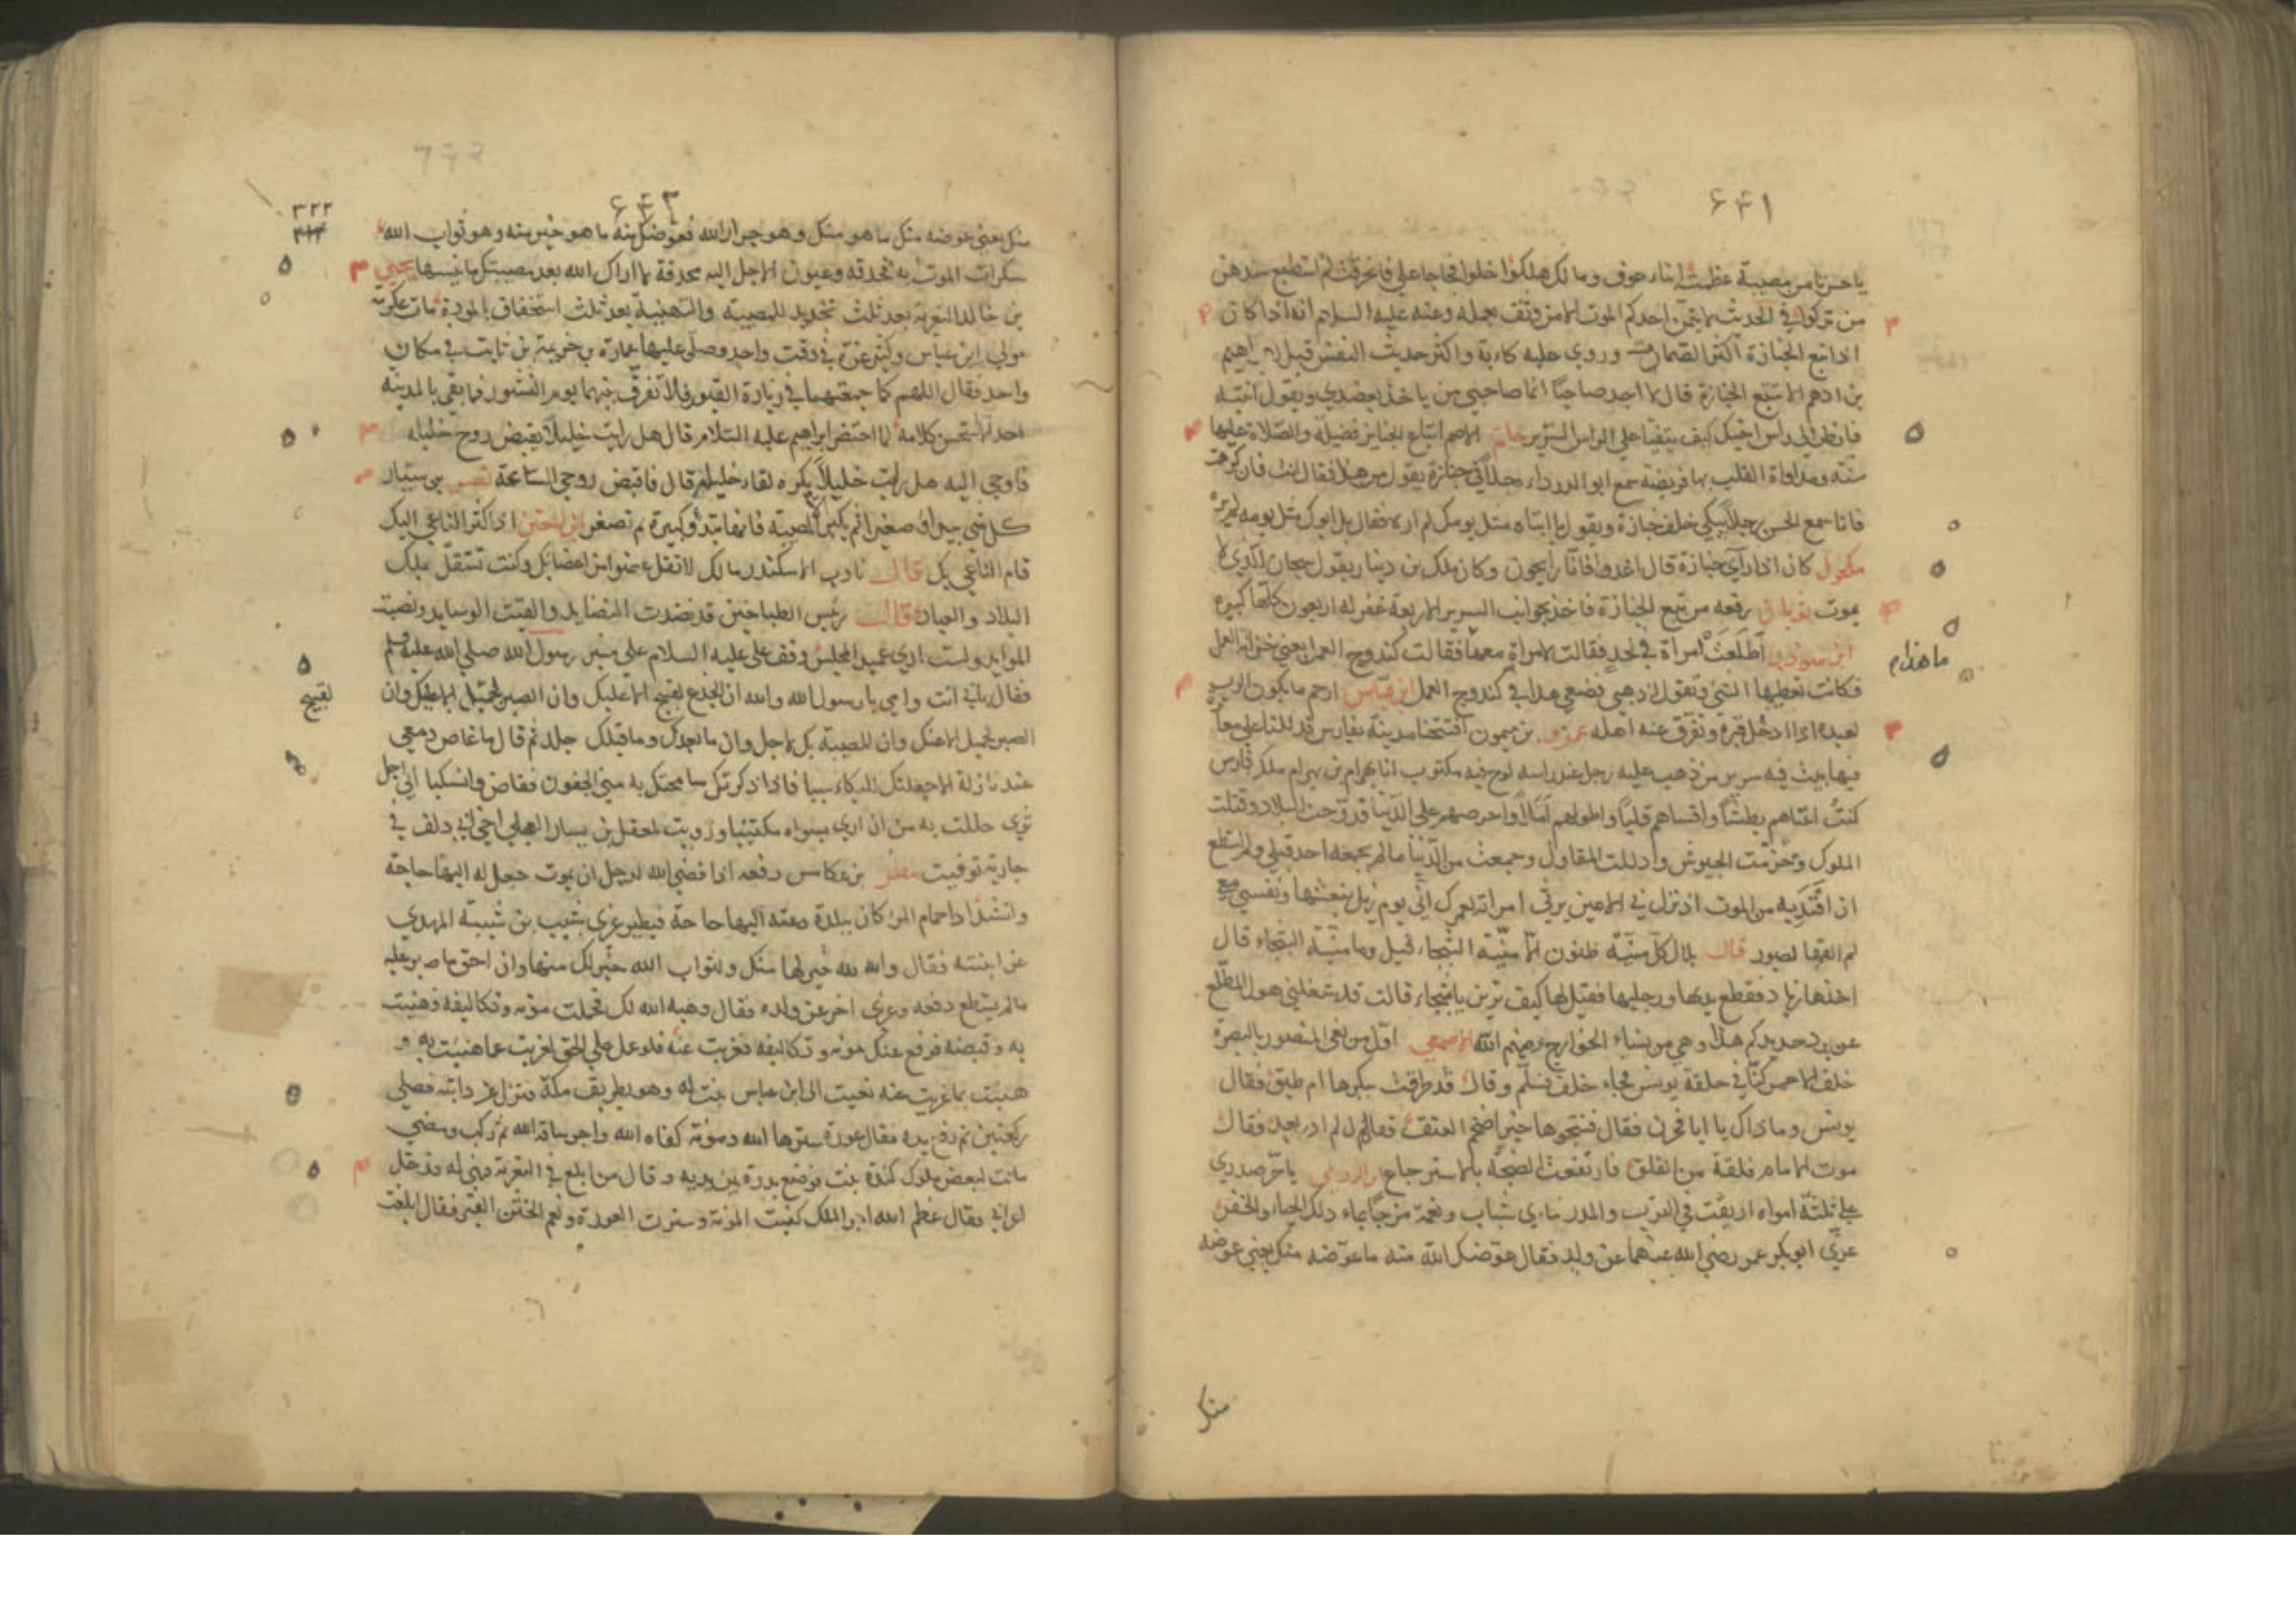 ۶۴۱
يا حسرتا من مصيبة عظمت ابناء رحوف ومالك هلكوا خلوا فجاجا علي فانخرقت لم استطع سدهن
من تركوا في الحديث لا يتمن احدكم الموت الا من وثق بعمله وعنه عليه السلام انه اذا كان
اذا تبع الجنازة اكثر الصمات وروي عليه كآبة واكثر حديث النفس قيل لابراهيم
بن ادهم الا تتبع الجنازة قال لا اجد صاحبا انما صاحبي من ياخذ بعضدي ويقول انتبه
فانظر الي راس اخيك كيف يتفيا علي الراس السرير حاتم الاصم اتباع الجنايز فضيلة والصلاة عليها
سنة ومداواة القلب بها فريضة سمع ابو الدرداء رجلا في جنازة يقول من هذا فقال انت فان كرهت
فانا سمع الحسن رجلا يبكي خلف جنازة ويقول يا ابتاه مثل يومك لم اره فقال بل ابوك مثل يومه لم يره
مكحول كان اذا رآي جنازة قال اغدوا فانا رايحون وكان ملك بن دينار يقول سبحان الذي لا
يموت ثوبان رفعه من تبع الجنازة فاخذ بجوانب السرير الاربعة غفر له اربعون كلها كبيرة
ابن شوذب اطلعت امراة في لحد فقالت لامراة معها فقالت كندوج العمل يعني خزانة العمل
ما هذا م
فكانت تعطيها الشئ وتقول اذهبي فضعي هذا في كندوج العمل ابن عباس ارحم ما يكون الرب
لعبده اذا ادخل قبره وتفرق عنه اهله عمرو بن ميمون افتتحنا مدينة بفارس فدللنا علي مغارة
فيها بيت فيه سرير من ذهب عليه رجل عند راسه لوح فيه مكتوب انا بهرام بن بهرام ملك فارس
كنت اعتاهم بطشا واقساهم قلبا واطولهم املا واحرصهم علي الدنيا قد دوخت البلاد وقتلت
الملوك وهزمت الجيوش واذللت المقاول وجمعت من الدنيا ما لم يجمعه احد قبلي ولم استطع
ان افتدي به من الموت اذ نزل في الاعين يرثي امراته لعمرك اني يوم زيل بنعشها ونفسي مع
لم القها لصبور قال بلال كل منية ظنون الا منية الشجاء قيل وما منية الشجاء قال
اخذها زياد فقطع يديها ورجليها فقيل لها كيف ترين يا شجاء قالت قد شغلني هول المطلع
عن برد حديدكم هذا وهي من نساء الخوارج رضيهم الله الاصمعي اول من نعي المنصور بالبصرة
خلف الاحمر كنا في حلقة يونس فجاء خلف فسلم وقال قد طرقت ببكرها ام طبق فقال
يونس وما ذاك يا ابا محرز فقال فنتجوها خيرا ضخم العنق فقال لم ادر بعد فقال
موت الامام فلقة من الفلق فارتفعت الضجة بالاسترجاع ابن الرومي يا حر صدري
علي ثلثة امواه اريقت في الترب والمدر ماءي شباب ونعمة مزجا بماء ذلك الحياء والخفر
عزي ابو بكر عمر رضي الله عنهما عن ولد فقال عوضك الله منه ما عوضه منك يعني عوضه
منك
۶۴۲
منك يعني عوضه منك ما هو منك وهو جوار الله فعوضك منه ما هو خير منه وهو ثواب الله
سكرات الموت به محدقة وعيون الاجل اليه محدقة لا اراك الله بعد مصيبتك ما ينسيها يحيي
بن خالد التعزية بعد ثلث تجديد للمصيبة والتهنية بعد ثلث استخفاف بالمودة مات عكرمة
مولي ابن عباس وكثير عزة في وقت واحد وصلي عليها عمارة بن خزيمة بن ثابت في مكان
واحد فقال اللهم كما جمعتهما في زيارة القبور فلا تفرق بينهما يوم النشور فما بقي بالمدينة
احد الا استحسن كلامه لما احتضر ابراهيم عليه السلام قال هل رايت خليلا يقبض روح خليله
فاوحي اليه هل رايت خليلا يكره لقاء خليله قال فاقبض روحي الساعة نصر بن سيار
كل شئ يبدو صغيرا ثم يكبر الا المصيبة فانها تبدو كبيرة ثم تصغر ابن المعتز اذا كثر الناعي اليك
قام الناعي بك قال نادب الاسكندر مالك لا تقل عضوا من اعضائك وكنت تستقل ملك
البلاد والعباد قال رئيس الطباخين قد نضدت النضايد والقيت الوسايد ونصبت
الموايد ولست اري عميد المجلس وقف علي عليه السلام علي قبر رسول الله صلي الله عليه وسلم
فقال بابي انت وامي يا رسول الله والله ان الجزع لقبيح الا عليك وان الصبر لجميل الا عليك وان
لقبيح
الصبر لجميل الا عنك وان المصيبة بك لاجل وان ما بعدك وما قبلك جلد ثم قال ما غاض دمعي
عند نازلة الا جعلتك للبكاء سببا فاذا ذكرتك سامحتك به مني الجفون ففاض وانسكبا اني اجل
ثري حللت به من ان اري بسواه مكتئبا ورويت لمعقل بن يسار العجلي اخي ابي دلف في
جارية توفيت مطر بن عكامس رفعه اذا قضي الله لرجل ان يموت جعل له اليها حاجة
وانشد اذا حمام المرء كان ببلدة دعته اليها حاجة فيطير عزي شبيب بن شيبة المهدي
عن ابنته فقال والله لله خير لها منك ولثواب الله خير لك منها وان احق ما صبر عليه
ما لم يستطع دفعه وعزي اخر عن ولده فقال وهبه الله لك فحملت مؤنه وتكاليفه فهنيت
به وقبضه فرفع عنك مؤنه وتكاليفه فعزيت عنه فلو عمل علي الحق لعزيت عما هنيت به و
هنيت بما عزيت عنه نعيت الي ابن عباس بنت له وهو بطريق مكة فنزل عن دابته فصلي
ركعتين ثم رفع يده فقال عورة سترها الله ومؤنة كفاه الله واجر ساقه الله ثم ركب ومضي
ماتت لبعض ملوك كندة بنت فوضع بدرة بين يديه وقال من ابلغ في التعزية فهي له فدخل
اعرابي فقال عظم الله اجر الملك كفيت المؤنة وسترت العورة ونعم الختن القبر فقال ابلغت